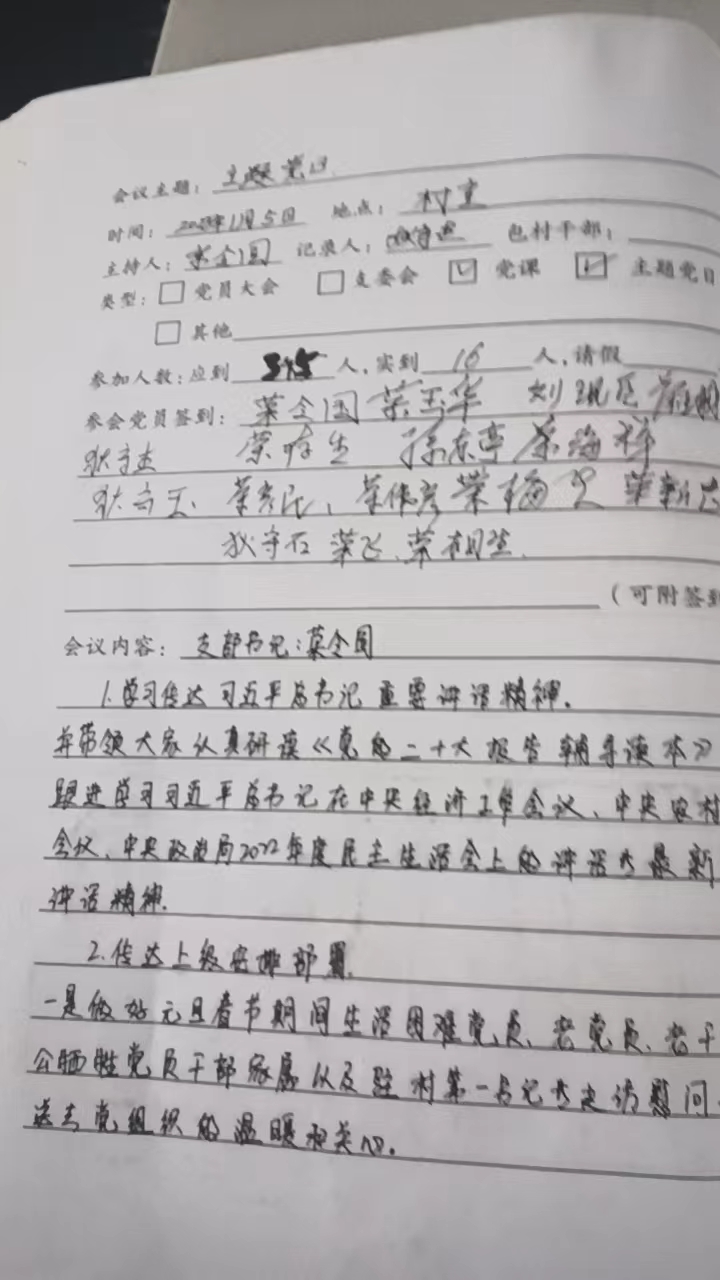 会议主题：主题党日
时间：2023年1月5日 地点：村室
主持人：荣全国 记录人： 包村干部：
类型：□ 党员大会 □ 支委会 ☑ 党课 ☑ 主题党日
□ 其他
参加人数：应到 人，实到 16 人，请假
参会党员签到：荣全国 荣玉华
狄守杰 荣海祥
狄守玉 荣彦民、荣伟彦
狄守石 荣飞、荣相生
（可附签到
会议内容：支部书记：荣全国
1.学习传达习近平总书记重要讲话精神。
并带领大家认真研读《党的二十大报告辅导读本》
跟进学习习近平总书记在中央经济工作会议、中央农村
会议、中央政治局2022年度民主生活会上的讲话等最新
讲话精神。
2.传达上级安排部署。
一是做好元旦春节期间生活困难党员、老党员、老干
公牺牲党员干部家属以及驻村第一书记等走访慰问
送去党组织的温暖和关心。